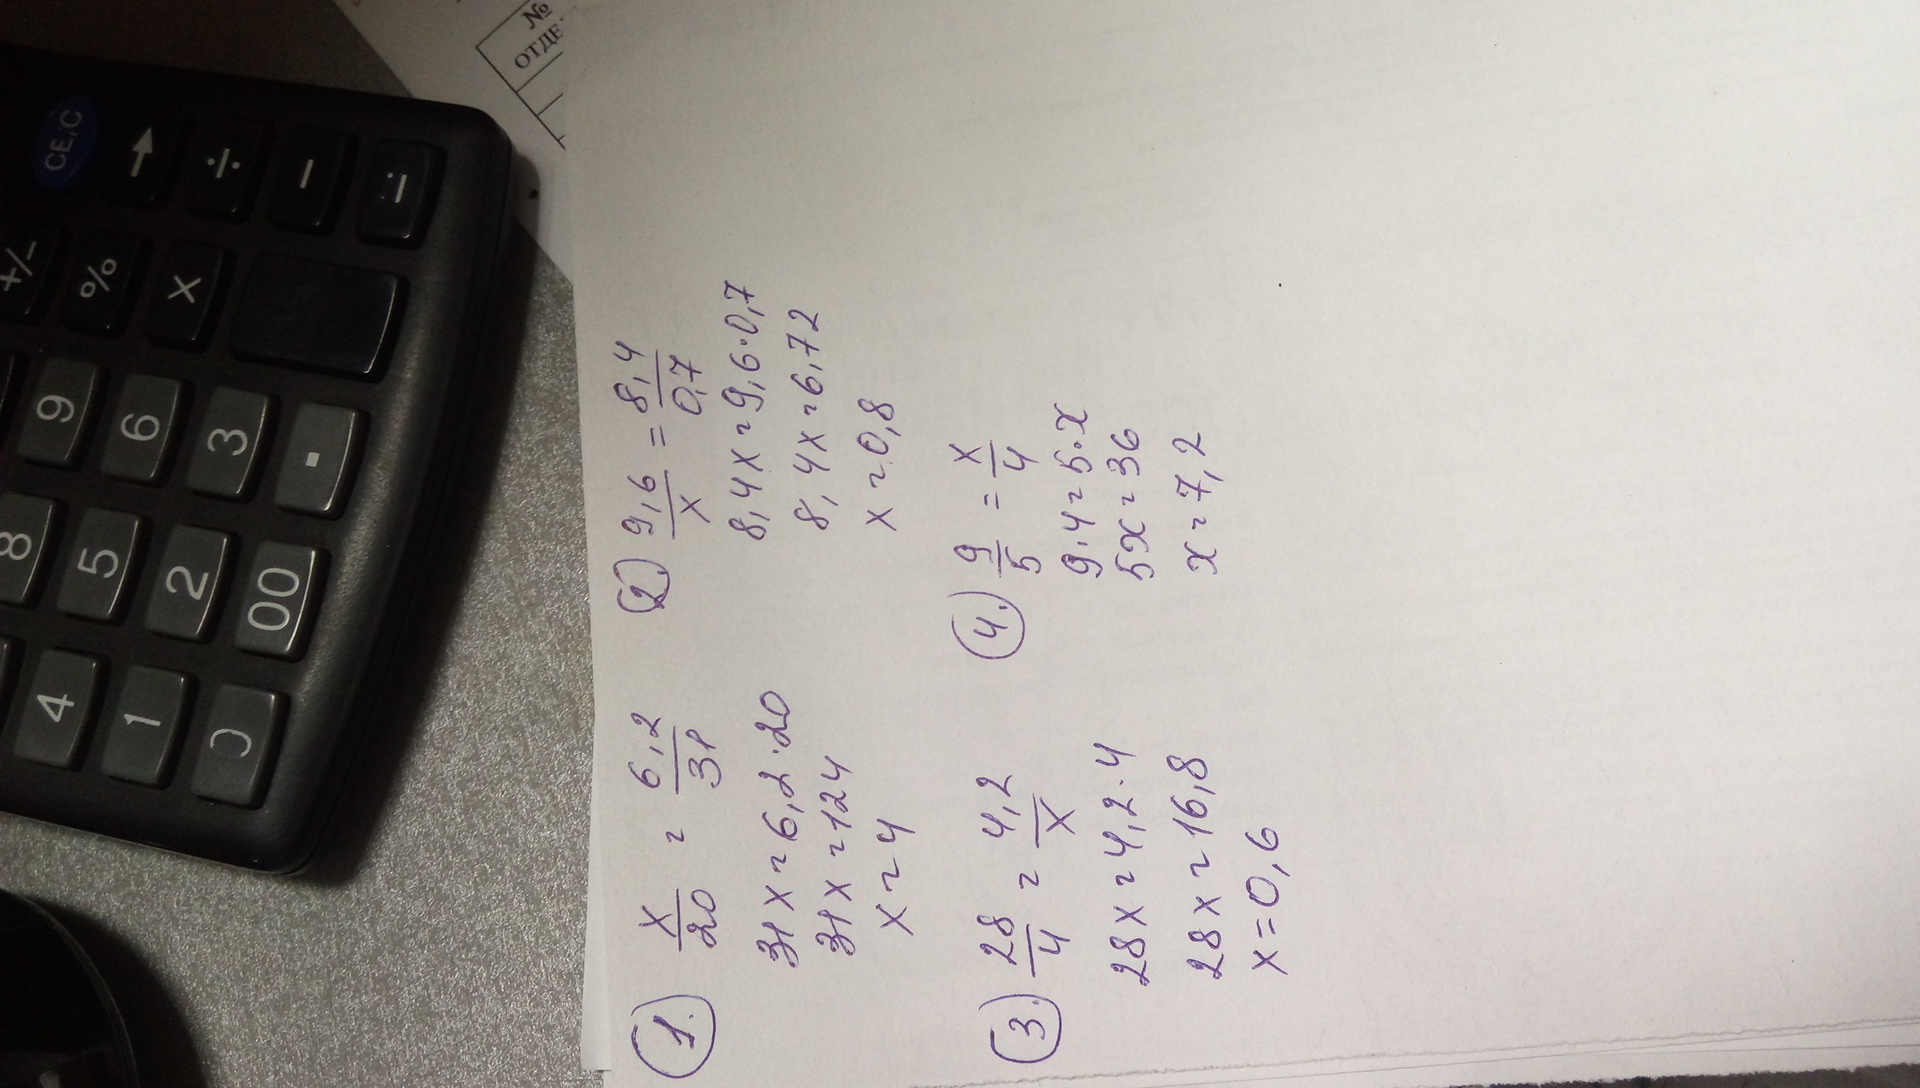 №
ОТДЕ
CE,C
→
÷
−
+/-
%
X
9
6
3
.
8
5
2
00
4
1
0
1. x/20 = 6,2/31
31x = 6,2·20
31x = 124
x = 4
2. 9,6/x = 8,4/0,7
8,4x = 9,6·0,7
8,4x = 6,72
x = 0,8
3. 28/4 = 4,2/x
28x = 4,2·4
28x = 16,8
x = 0,6
4. 9/5 = x/4
9·4 = 5·x
5x = 36
x = 7,2